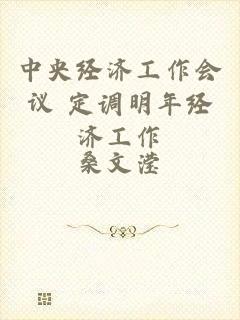 中央经济工作会
议 定调明年经
济工作
桑文滢